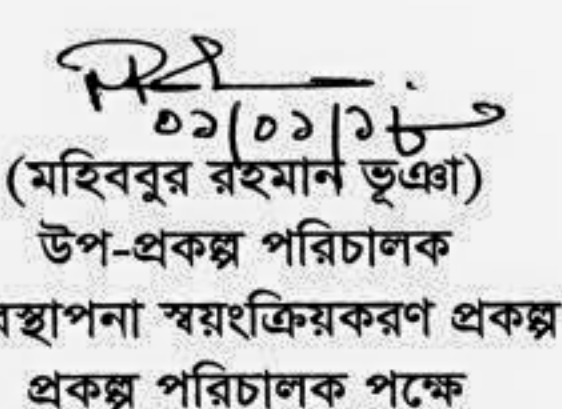 ০১/০১/১৮
(মহিববুর রহমান ভূঞা)
উপ-প্রকল্প পরিচালক
স্বয়ংক্রিয়করণ প্রকল্প
প্রকল্প পরিচালক পক্ষে